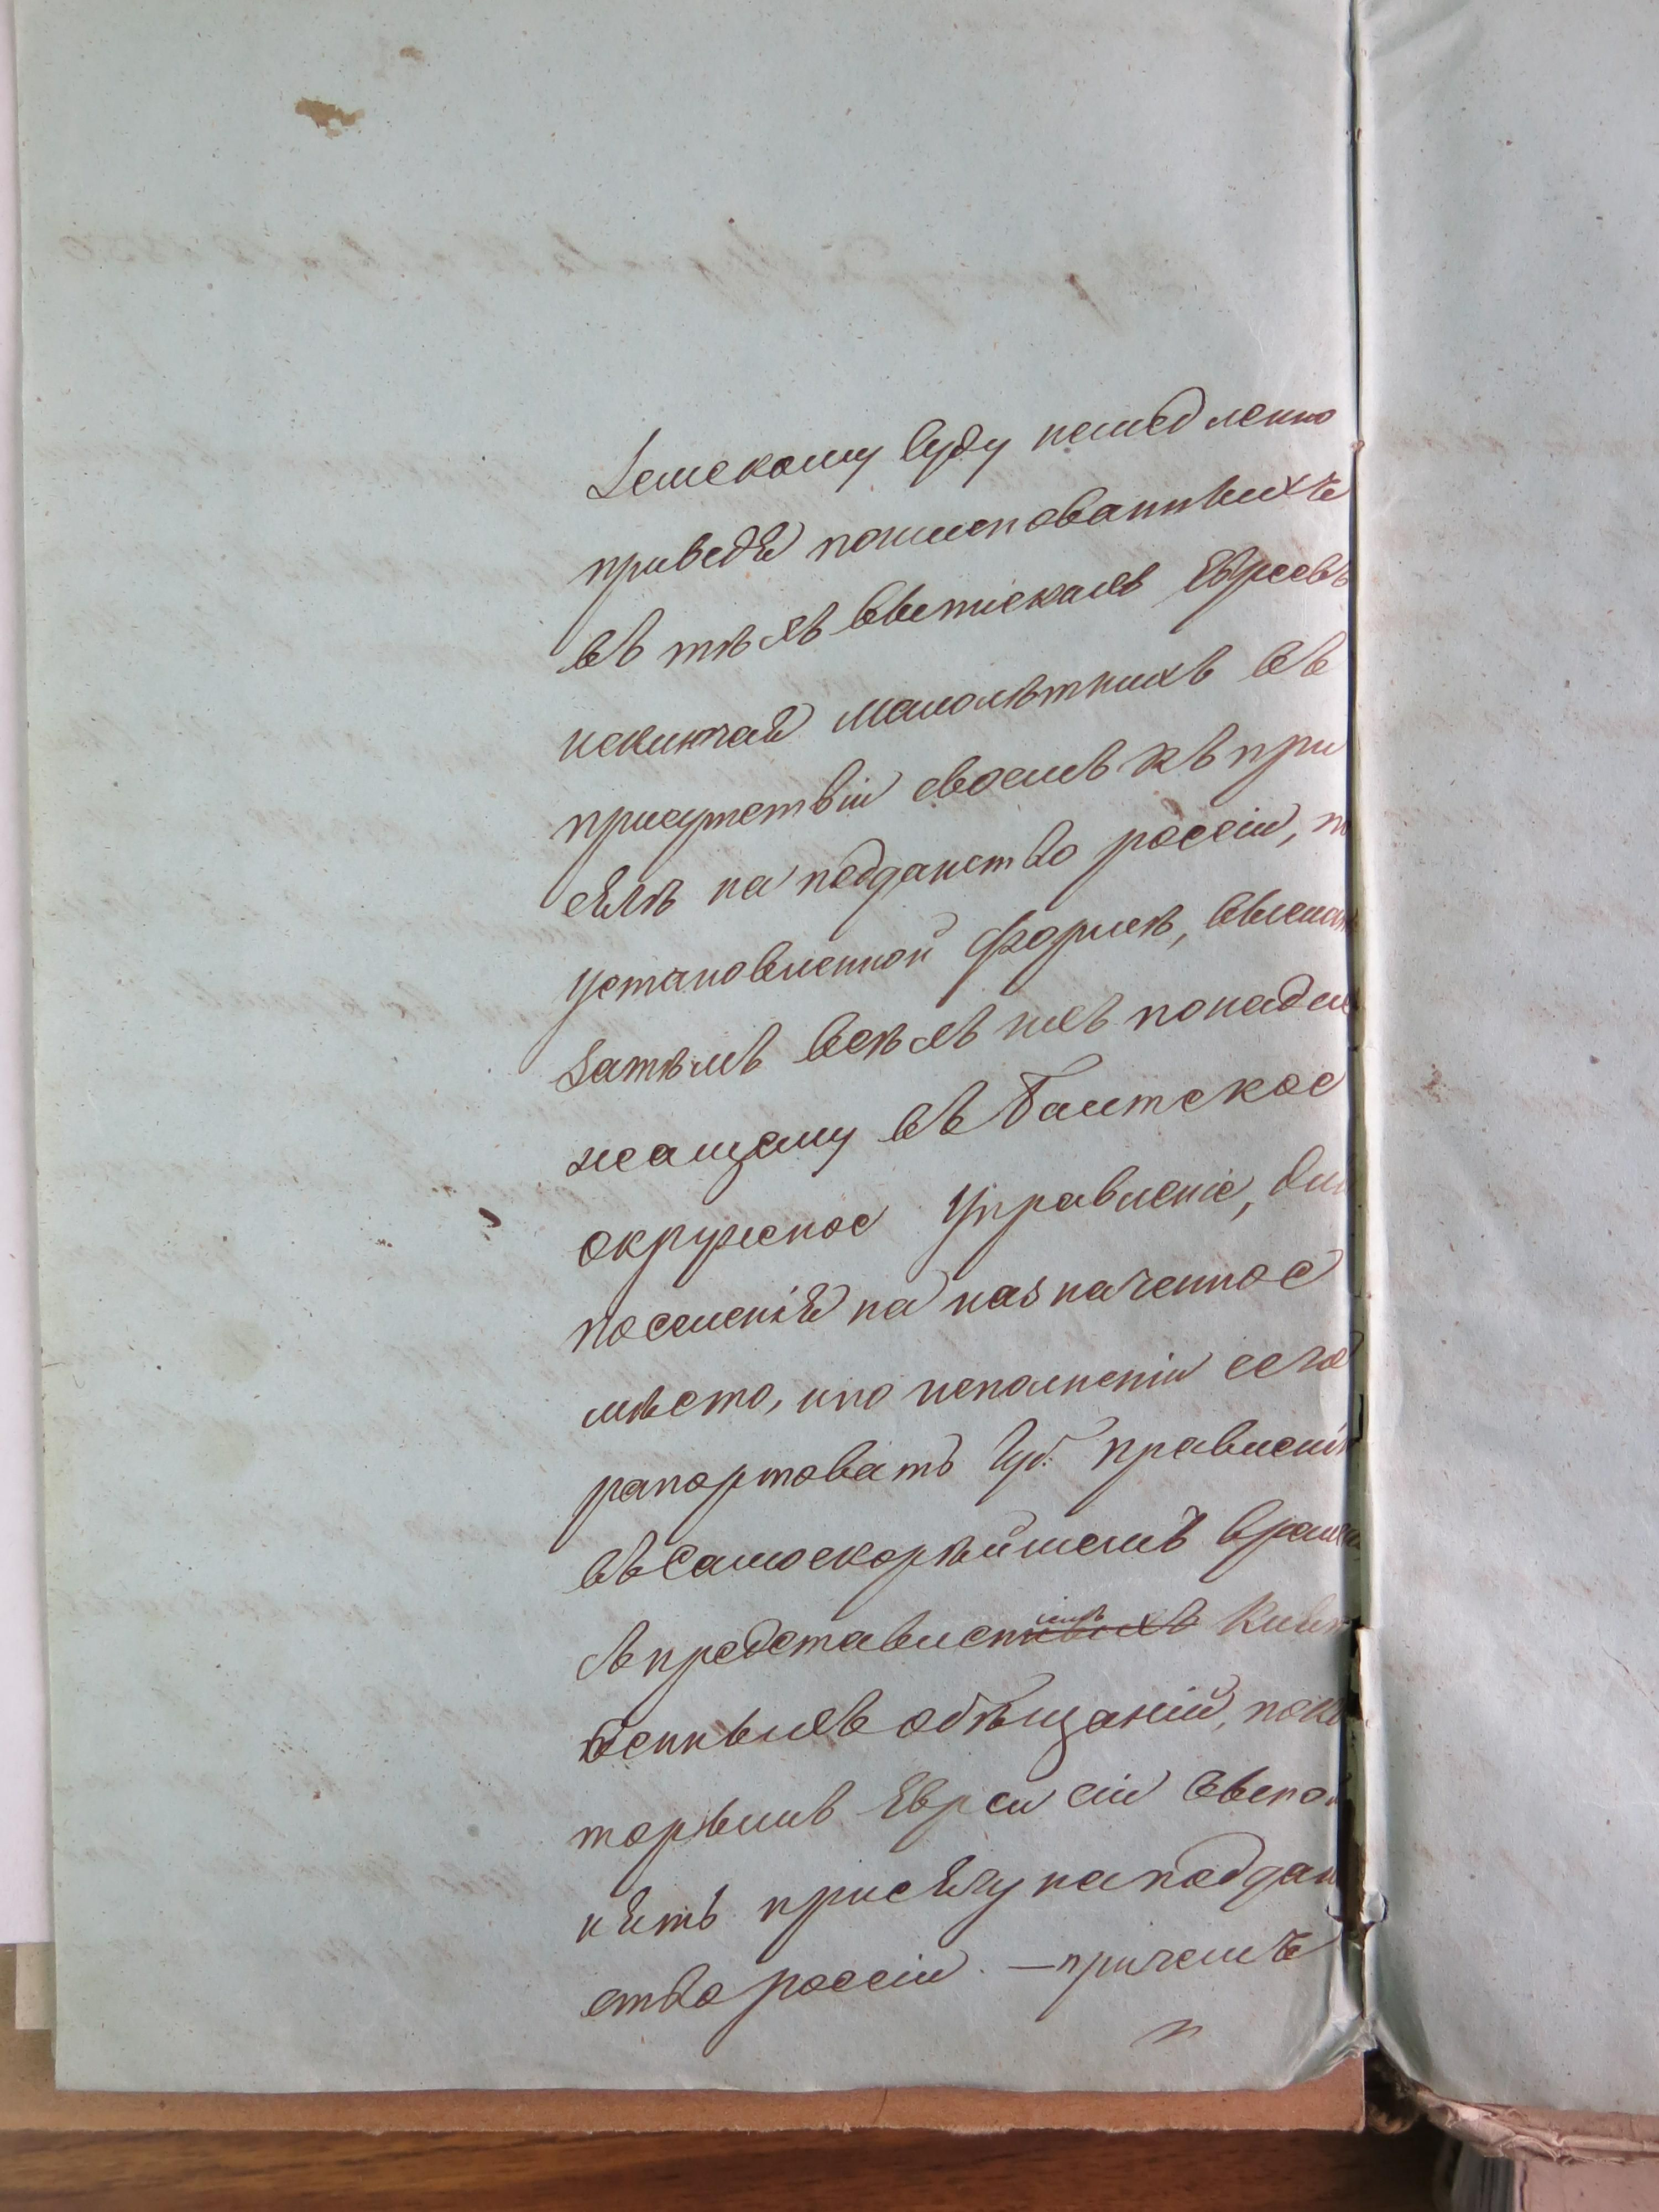 Земскому Суду немедленно
приведя поименованныхъ
въ тѣхъ выпискахъ Евреевъ
исключая малолѣтнихъ въ
присутствіи своемъ къ при
сягѣ на подданство россіи, по
установленной формѣ,
затѣмъ всѣхъ ихъ понадле
жащему въ Каинское
окружное Управленіе, для
поселенія на назначенное
мѣсто, ипо исполненіи сего
рапортовать Губ. Правленію
въ самоскорѣйшемъ времени
съ представленіемъ Клят
венныхъ обѣщаній, пако
торымъ Евреи сіи
нять присягу наподдан
ство россіи. — причемъ
п